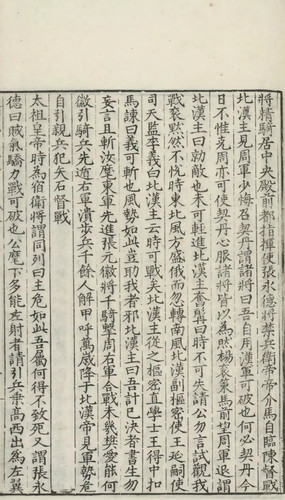 將精騎居中央殿前都指揮使張永德將禁兵衛帝帝介馬自臨陳督戰
北漢主見周軍少悔召契丹謂諸將曰吾自用漢軍可破也何必契丹今
日不惟克周亦可使契丹心服諸將皆以為然楊袞策馬前望周軍退謂
北漢主曰勍敵也未可輕進北漢主奮髯曰時不可失請公勿言試觀我
戰袞默然不悅時東北風方盛俄而忽轉南風北漢副樞密使王延嗣使
司天監李義白北漢主云時可戰矣北漢主從之樞密直學士王得中扣
馬諫曰義可斬也風勢如此豈助我者邪北漢主曰吾計已決老書生勿
妄言且斬汝麾東軍先進張元徽將千騎擊周右軍合戰未幾樊愛能何
徽引騎兵先遁右軍潰步兵千餘人解甲呼萬歲降于北漢帝見軍勢危
自引親兵犯矢石督戰
太祖皇帝時為宿衛將謂同列曰主危如此吾屬何得不致死又謂張永
德曰賊氣驕力戰可破也公麾下多能左射者請引兵乘高西出為左翼